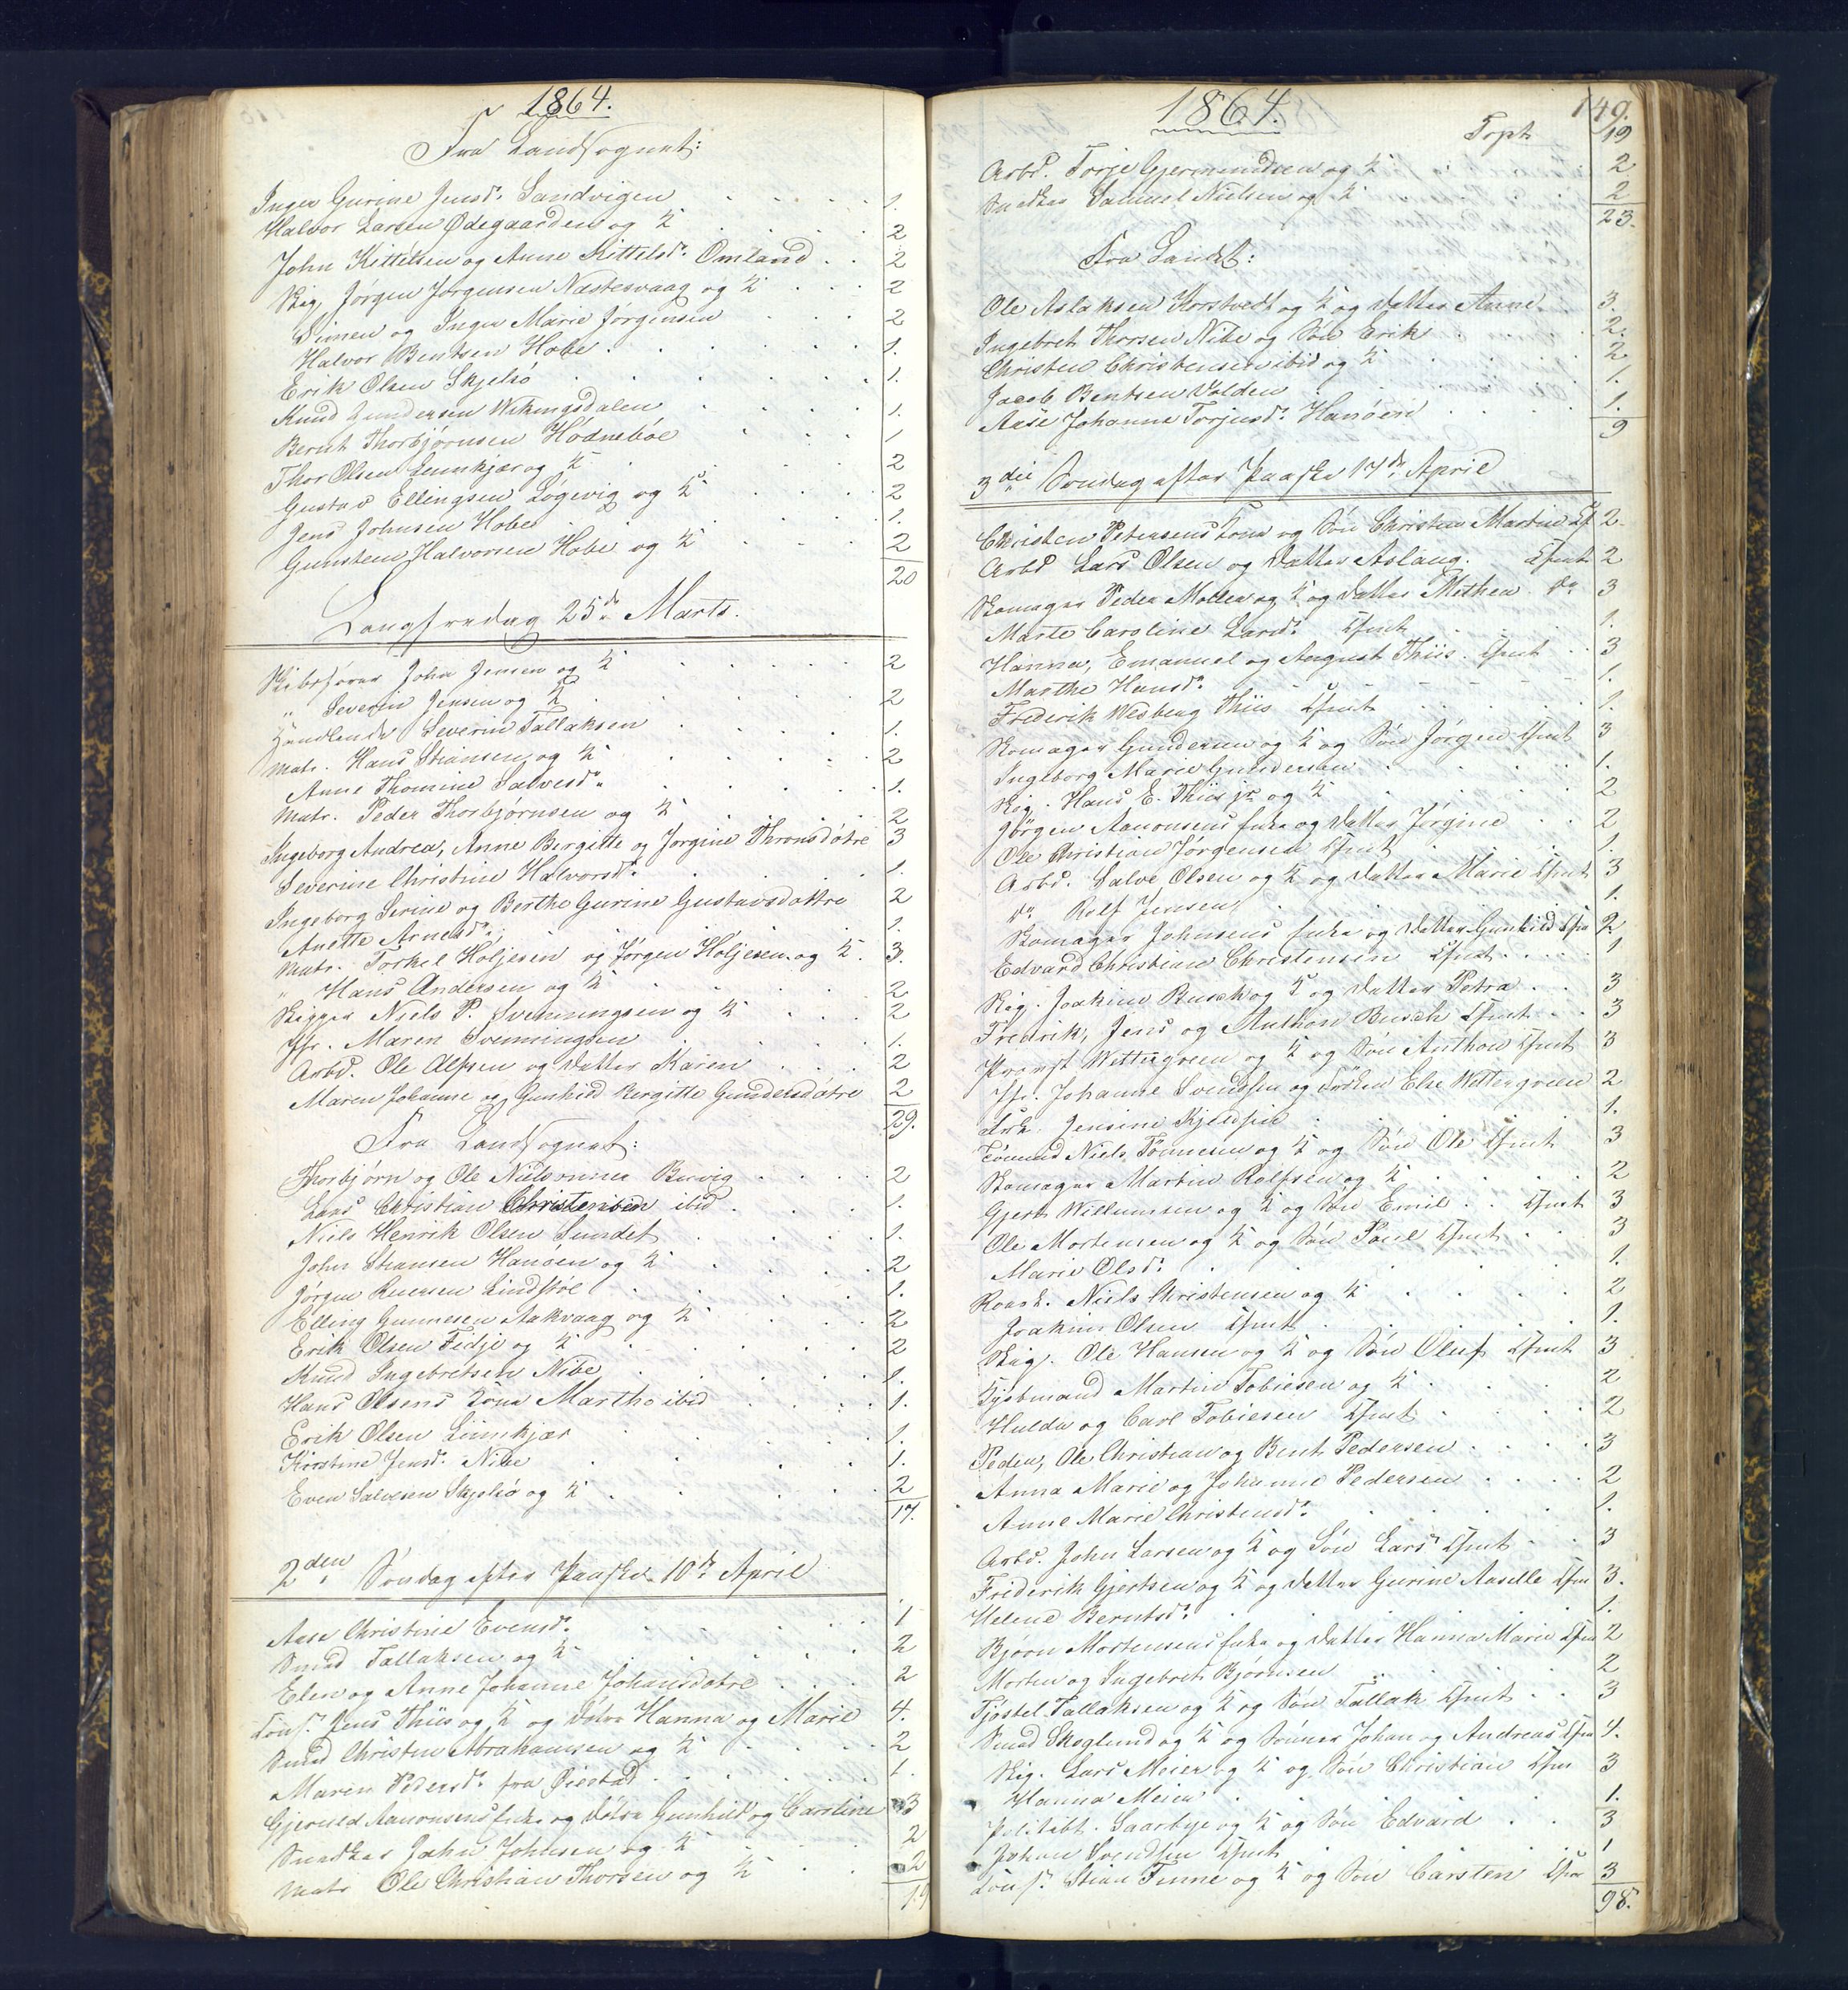 1864.
Fra Landsognet:
Inger Gurine Jensd. Sandvigen . . . . 1.
Halvor Larsen Ødegaarden og K . . . . 2
John Kittelsen og Anne Kittelsd. Omland . . 2
Skip. Jørgen Jørgensen Næstesvaag og K . . . 2
Simen og Inger Marie Jørgensen . . . 2
Halvor Bentsen Hobe . . . . . . 1.
Erik Olsen Skjelsö . . . . . . 1.
Knud Gundersen Wikingsdalen . . . . 1.
Bernt Thorbjørnsen Hødnebøe . . . . 1
Thor Olsen Lunnkjær og K . . . . 2
Gustav Ellingsen Løgevig og K . . . . 2
Jens Johnsen Hobe . . . . . 1.
Gunsteen Halvorsen Hobe og K . . . 2
20
Langfredag 25de Marts.
Skibsfører John Jensen og K . . . . . 2
" Severin Jensen og K . . . . . 2
Handlende Severin Tallaksen . . . . . 1.
Matr. Hans Stiansen og K . . . . . 2
Anne Thomine Salvesdr . . . . . 1.
Matr. Peder Thorbjørnsen og K . . . . 2
Ingeborg Andrea, Anne Bergitte og Jørgine Thronsdøtre 3
Severine Christine Halvorsdr. . . . . 1.
Ingeborg Serine og Berthe Gurine Gustavsdøttre 2
Anette Arnesdr. . . . . . 1.
Matr. Torkel Holjesen og Jørgen Holjesen og K. 3.
" Hans Andersen og K . . . . . 2
Skipper Niels P. Svenningsen og K . . . 2
Jfr. Maren Svenningsen . . . . . 1.
Arbd. Ole Alfsen og Datter Karen . . . 2
Maren Johanne og Gunhild Bergitte Gundersdøtre 2
29.
Fra Landsognet:
Thorbjørn og Ole Nielsen Buvig . . . . 2
Lars Christian Christensen ibid . . . . 1.
Niels Henrik Olsen Sundet . . . . 1.
John Stiansen Hanøen og K . . . . 2
Jørgen Reiersen Lindstøl . . . . 1.
Elling Gunnesen Aakvaag og K . . . . 2
Erik Olsen Fidje og K . . . . . 2
Knud Ingebretsen Nibe . . . . . 1.
Hans Olsens Kone Marthe ibid . . . . 1.
Erik Olsen Lunnkjær . . . . . 1.
Kirstine Jensd. Nibe . . . . . 1.
Even Salvesen Skjelsö og K . . . . . 2
17.
2den Søndag efter Paaske 10de April
Aase Christine Evensdr. . . . . . 1
Smed Tallaksen og K . . . . . 2
Elen og Anne Johanne Johansdøtre . . . 2
Cons. Jens Thiis og K og Døtre Hanna og Marie 4.
Smed Christen Abrahamsen og K . . . . 2
Maren Pedersdr. fra Øiestad . . . . . 1.
Gjeruld Aanonsens Enke og Døtre Gunhild og Caroline 3
Snedker John Johnsen og K . . . . 2
Matr Ole Christian Thorsen og K . . . 2
19
1864.
149.
Trpt. 19
Arbd. Torje Gjermundsen og K . . 2
Snedker Samuel Nielsen og K . . . 2
23.
Fra Landet:
Ole Aslaksen Horstvedt og K og Datter Anne . 3.
Ingebret Thorsen Nibe og Søn Erik . . . 2.
Christen Christensen ibid og K . . . . 2
Jacob Bentsen Volden . . . . . 1.
Aase Johanne Torjusdr. Hanøen . . . . 1.
9
3die Søndag efter Paaske 17de April
Christen Petersens Kone og Søn Christen Martin Cf 2
Arbd Lars Olsen og Datter Aslaug. Cfmt 2
Skomager Peder Møller og K og Datter Methea do 3
Marte Caroline Larsdr. Cfmt . . . . 1.
Hanna, Emanuel og August Thiis Cfmt . . 3
Marthe Hansdr. - - - - - - 1.
Frederik Wedberg Thiis Cfmt . . . . 1.
Skomager Gundersen og K og Søn Jørgen Cfmt 3
Ingeborg Marie Gundersen . . . . 1.
Skip. Hans E. Thiis jr. og K . . . . 2
Jørgen Aanonsens Enke og Datter Jørgine . . 2
Ole Christian Jørgensen Cfmt . . . 1.
Arbd. Salve Olsen og K og Datter Marie Cfmt 3
do Rolf Jensen . . . . . 1.
Skomager Johnsens Enke og Datter Gunhild Cfm 2
Edvard Christian Christensen Cfmt . . . . 1
Skip. Joakim Busch og K og Datter Petra . . 3
Fredrik, Jens og Anthon Busch Cfmt . . 3
Provst Wettergreen og K og Søn Anthon Cfmt 3
Jfr. Johanne Svendsen og Frøken Else Wettergreen 2
Jensine Kjendsen . . . . . 1.
Tømmd Niels Tønnesen og K og Søn Ole Cfmt 3
Skomager Martin Rolfsen og K . . . . 2
Gjert Willumsen og K og Søn Emil . . Cfmt 3
Ole Mortensen og K og Søn Poul Cfmt . . 3
Marie Olsdr. . . . . . 1.
Roersk. Niels Christensen og K . . . . 2
Joakim Olsen Cfmt . . . . . 1.
Skip. Ole Hansen og K og Søn Oluf Cfmt 3
Kjøbmand Martin Tobiesen og K . . . 2
Hulda og Carl Tobiesen Cfmt . . . . 2
Peder, Ole Christian og Bent Pedersen . . . . 3
Anna Marie og Johanne Pedersen . . . . 2
Anne Marie Christensdr. . . . . 1.
Arbd. John Larsen og K og Søn Lars Cfmt . . 3
Friderik Gjertsen og K og Datter Gurine Aaselle Cfm 3.
Helene Berntsdr. . . . . . 1.
Bjørn Mortensens Enke og Datter Hanna Marie Cfm 2
Morten og Ingebret Bjørnsen . . . . 2
Tjøstel Tallaksen og K og Søn Tallak Cfmt . . 3
Smed Skoglund og K og Sønner Johan og Andreas Cfm 4.
Skip. Lars Meier og K og Søn Christian Cfm 3
Hanna Meier . . . . . 1.
Politibt. Saarbye og K og Søn Edvard . . 3
Johan Svendsen Cfmt . . . . 1
Cons. Stian Finne og K og Søn Carsten Cfm 3
98.